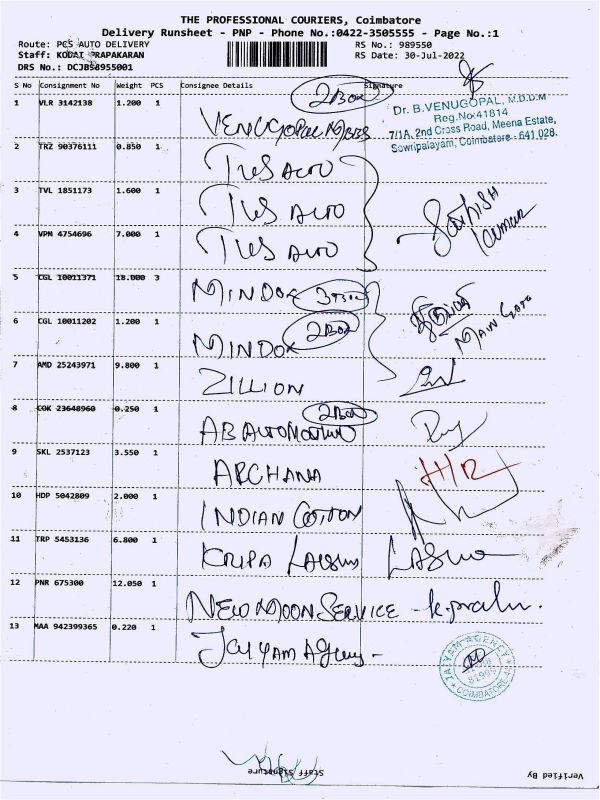 THE PROFESSIONAL COURIERS, Coimbatore
Delivery Runsheet - PNP - Phone No.:0422-3505555 - Page No.:1
Route: PCS AUTO DELIVERY
RS No.: 989550
Staff: KODAI PRAPAKARAN
RS Date: 30-Jul-2022
DRS No.: DCJB98955001
S No Consignment No Weight PCS Consignee Details Signature
2Box
1 VLR 3142138 1.200 1
VENUGOPAL
Dr. B.VENUGOPAL, M.D.D.M
Reg.No:41814
7/1A, 2nd Cross Road, Meena Estate,
Sowripalayam, Coimbatore - 641 028.
2 TRZ 90376111 0.850 1
TVS AUTO
3 TVL 1851173 1.600 1
TVS AUTO
Sathish
kumar
4 VPM 4754696 7.000 1
TVS AUTO
5 CGL 10011371 18.000 3
MINDOX 3Box
MAIN Gate
6 CGL 10011202 1.200 1
2Box
MINDOX
7 AMD 25243971 9.800 1
ZILLION
8 COK 23648960 0.250 1
2Box
AB AUTOMOTIVE
9 SKL 2537123 3.550 1
ARCHANA
10 HDP 5042809 2.000 1
INDIAN COTTON
11 TRP 5453136 6.800 1
KRIPA
12 PNR 675300 12.050 1
NEW MOON SERVICE -
13 MAA 942399365 0.220 1
Jaiyam Agency -
JAIYAM AGENCY
COIMBATORE
Staff Signature
Verified By